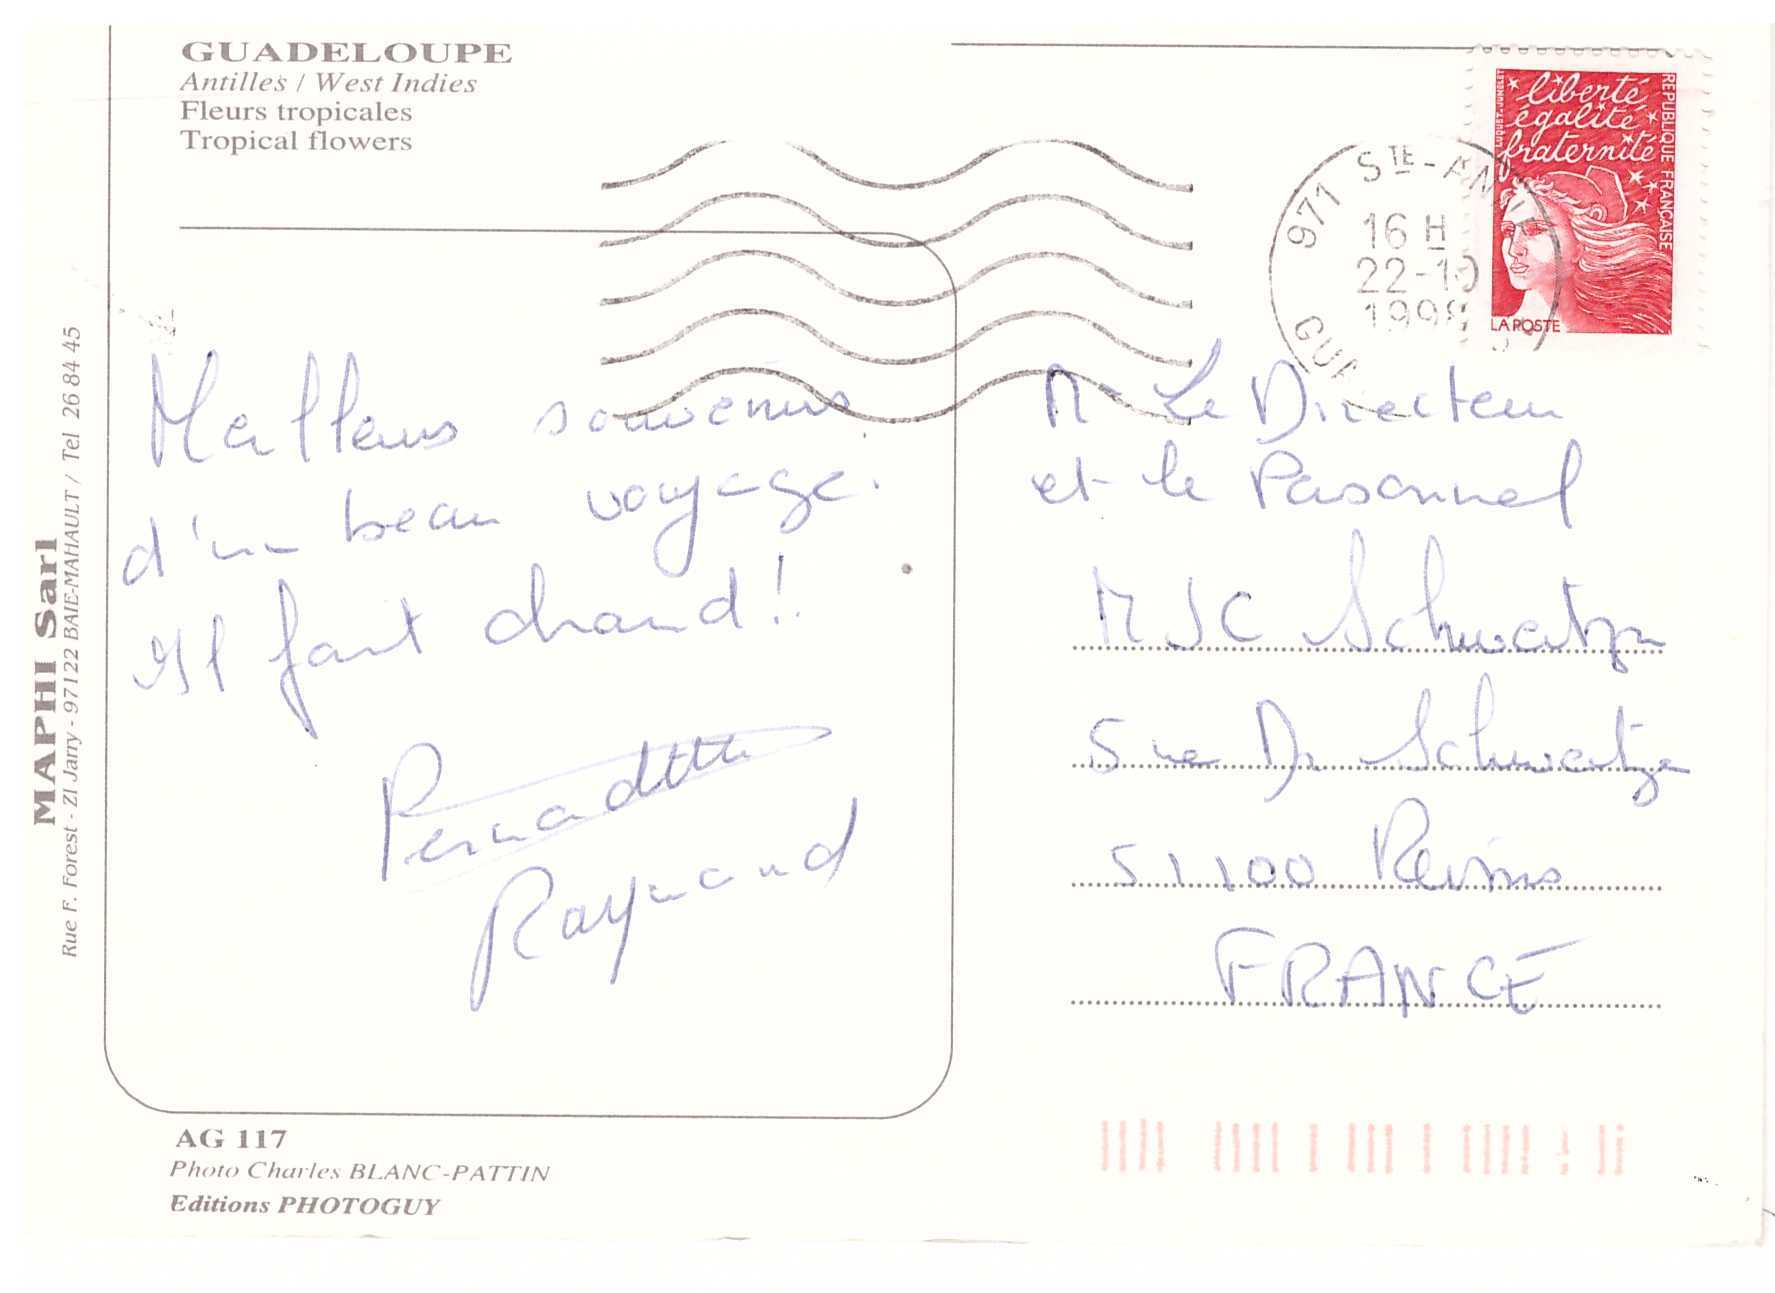 GUADELOUPE
Antilles / West Indies
Fleurs tropicales
Tropical flowers
liberté
égalité
fraternité
REPUBLIQUE FRANÇAISE
LA POSTE
971 STE-ANNE
16 H
22-10
1998
GUA
MAPHI Sarl
Rue F. Forest - ZI Jarry - 97122 BAIE-MAHAULT / Tel 26 84 45
Meilleurs souvenirs
d'un beau voyage.
Il fait chaud !
Bernadette
Raymond
Mr Le Directeur
et le Personnel
MJC Schweitzer
5 rue Dr Schweitzer
51100 Reims
FRANCE
AG 117
Photo Charles BLANC-PATTIN
Editions PHOTOGUY